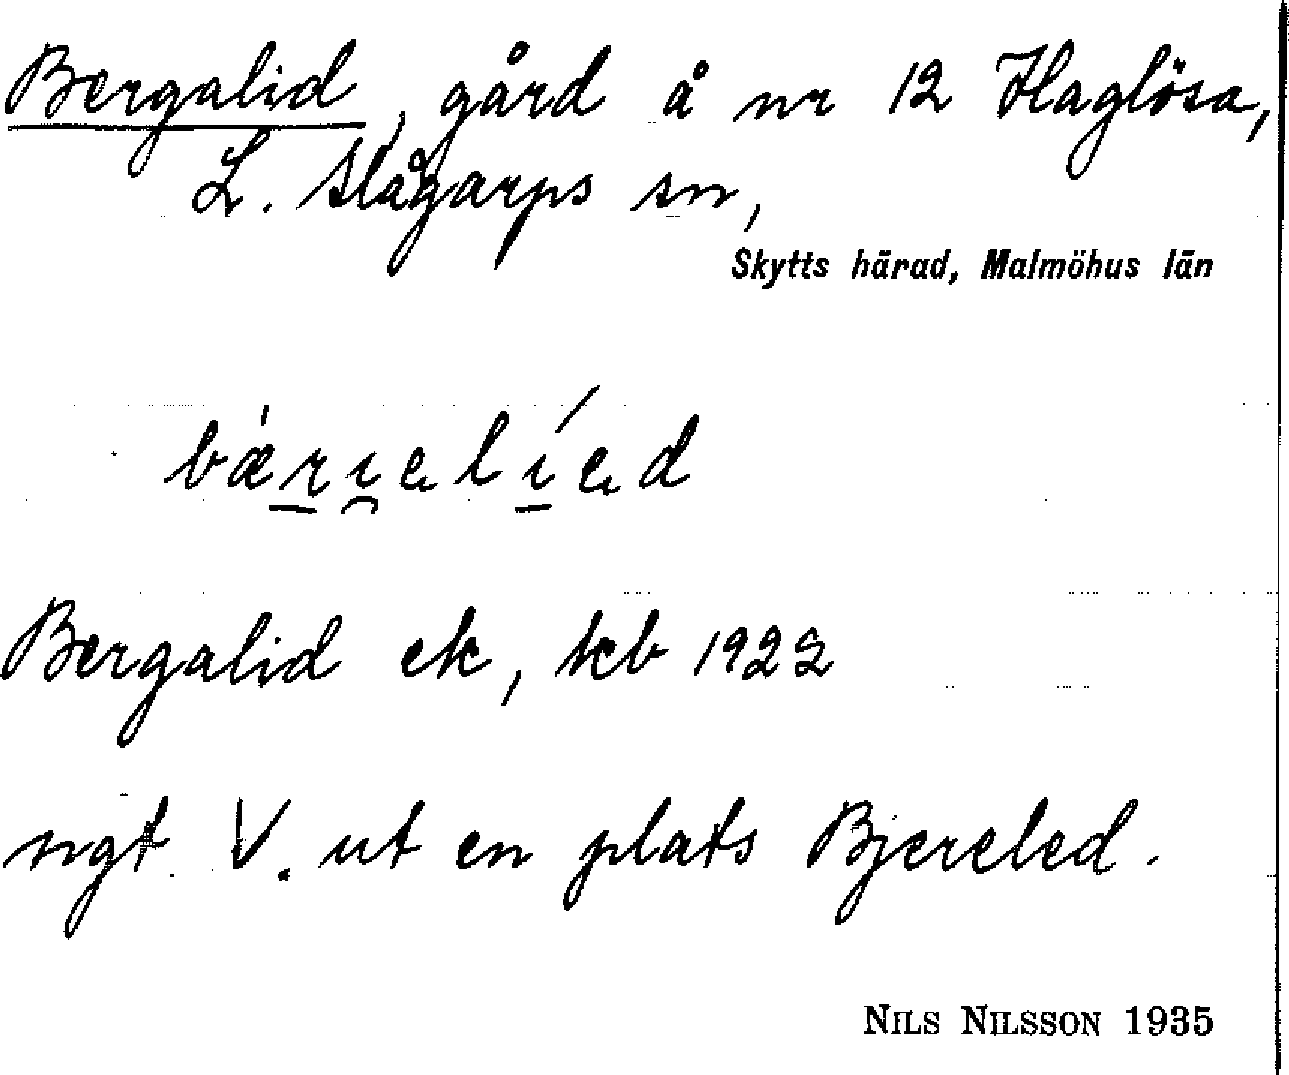 Bergalid, gård å nr 12 Haglösa,
L. Slågarps sn,
Skytts härad, Malmöhus län
bæ̀r̠ı̯ɐlı̠́ɐd
Bergalid ek, kb 1922
ngt V. ut en plats Bjereled.
NILS NILSSON 1935